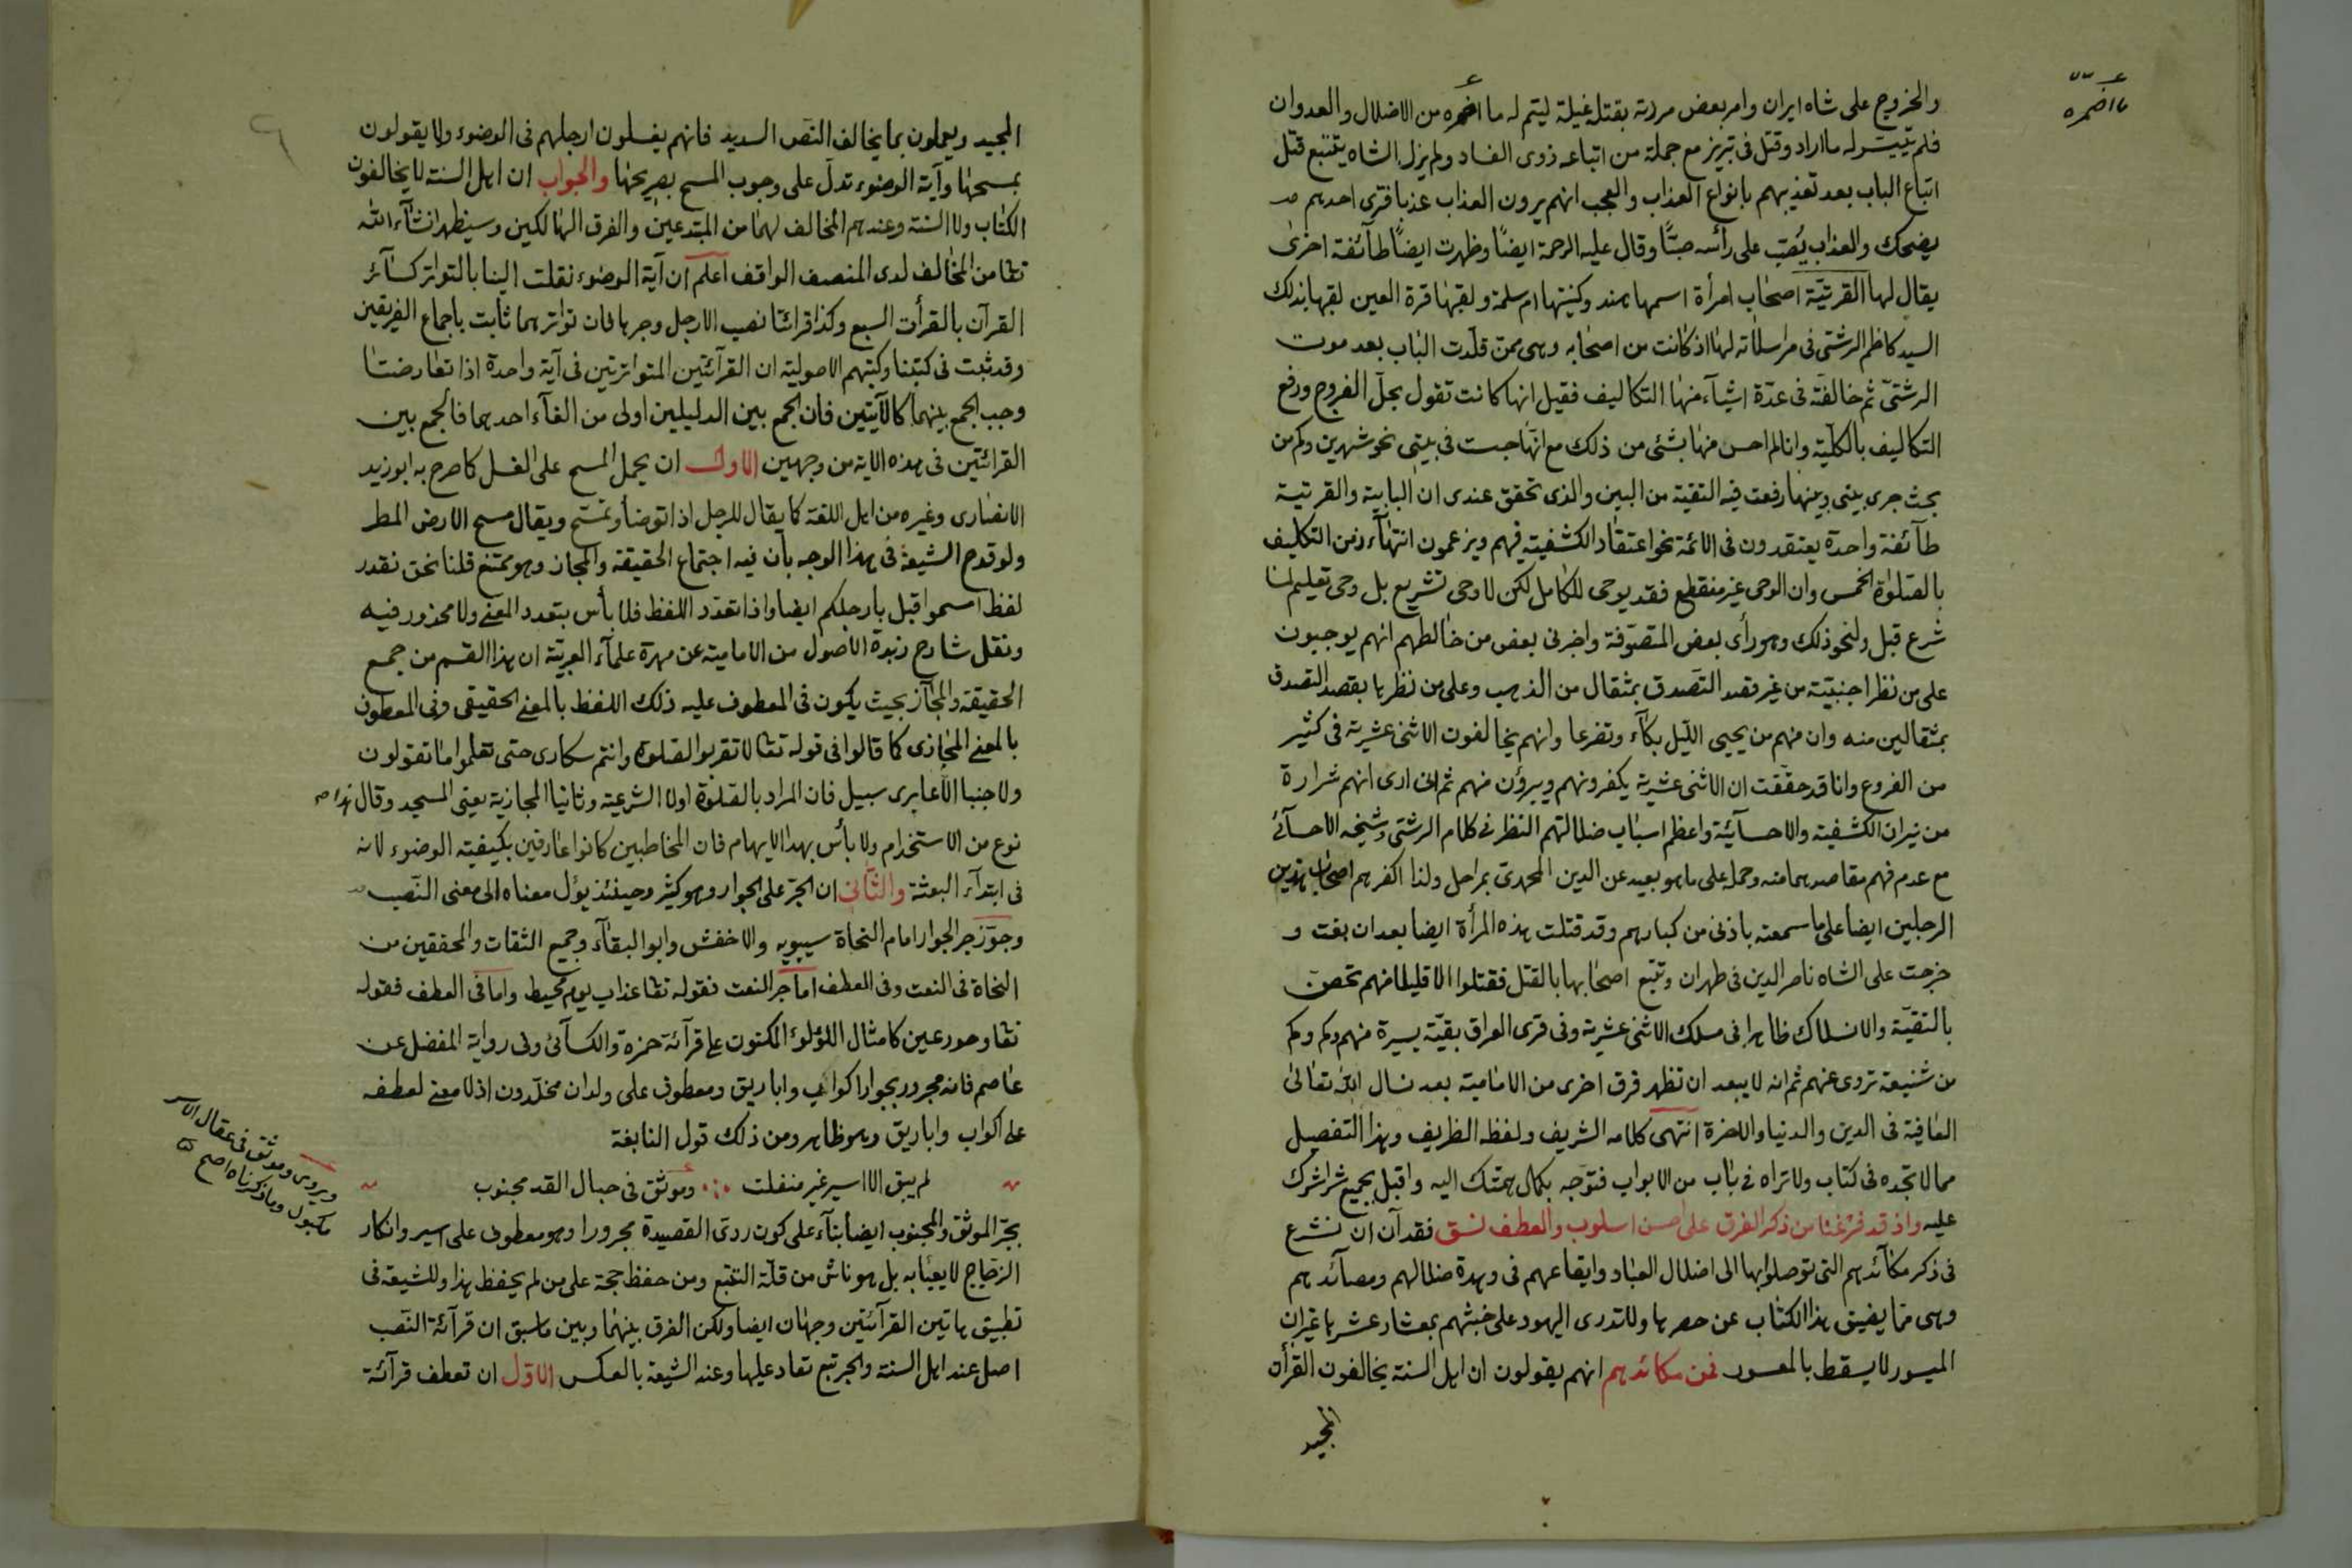 والخروج على شاه ايران وامر بعض مردته بقتله غيلة ليتم له ما اضمره من الاضلال والعدوان
ما اضمره
فلم يتيسر له ما اراد وقتل فى تبريز مع جملة من اتباعه ذوى الفساد ولم يزل الشاه يتتبع قتل
اتباع الباب بعد تعذيبهم بانواع العذاب والعجب انهم يرون العذاب عذبا فترى احدهم
يضحك والعذاب يُصَبّ على رأسه صبًّا وقال عليه الرحمة ايضًا وظهرت ايضًا طآئفة اخرى
يقال لها القرتيّة اصحاب امرأة اسمها هند وكنيتها ام سلمة ولقبها قرة العين لقبها بذلك
السيد كاظم الرشتى فى مراسلاته لها اذ كانت من اصحابه وهى ممن قلّدت الباب بعد موت
الرشتىّ ثم خالفته فى عدّة اشيآء منها التكاليف فقيل انها كانت تقول بحلّ الفروج ورفع
التكاليف بالكلّية وانا لم احس منها بشئى من ذلك مع انّها حبست فى بيتى نحو شهرين وكم من
بحث جرى بينى وبينها رفعت فيه التقية من البين والذى تحقق عندى ان البابية والقرتية
طآئفة واحدة يعتقدون فى الائمة نحو اعتقاد الكشفية فيهم ويزعمون انتهآء زمن التكليف
بالصلوة الخمس وان الوحى غير منقطع فقد يوحى للكامل لكن لا وحى تشريع بل وحى تعليم لما
شرع قبل ولنحو ذلك وهو رأى بعض المتصوّفة واخبرنى بعض من خالطهم انهم يوجبون
على من نظر اجنبيّة من غير قصد التصدق بمثقال من الذهب وعلى من نظرها بقصد التصدق
بمثقالين منه وان منهم من يحيى الليل بكآء وتضرعا وانهم يخالفون الاثنى عشرية فى كثير
من الفروع وانا قد حققت ان الاثنى عشرية يكفرونهم ويبرؤن منهم ثم انى ارى انهم شرارة
من نيران الكشفية والاحسآئية واعظم اسباب ضلالتهم النظر فى كلام الرشتى وشيخه الاحسآئى
مع عدم فهم مقاصدهما منه وحمله على ما هو بعيد عن الدين المحمدىّ بمراحل ولذا اكفرهم اصحاب هذين
الرجلين ايضا على ما سمعته باذنى من كبارهم وقد قتلت هذه المرأة ايضا بعد ان بغت و
خرجت على الشاه ناصر الدين فى طهران وتتبع اصحابها بالقتل فقتلوا الا قليلا منهم تحصن
بالتقيّة والانسلاك ظاهرا فى مسلك الاثنى عشرية وفى قرى العراق بقيّة يسيرة منهم وكم وكم
من شنيعة تروى عنهم ثم انه لا يبعد ان تظهر فرق اخرى من الامامية بعد نسال الله تعالى
العافية فى الدين والدنيا والاخرة انتهى كلامه الشريف ولفظه الظريف وهذا التفصيل
مما لا تجده فى كتاب ولا تراه فى باب من الابواب فتوجه بكمال همتك اليه واقبل بجميع شراشرك
عليه واذ قد فرغنا من ذكر الفرق على احسن اسلوب والطف نسق فقد آن ان نشرع
فى ذكر مكآئدهم التى توصلوا بها الى اضلال العباد وايقاعهم فى وهدة ضلالهم ومصآئدهم
وهى مما يضيق هذا الكتاب عن حصرها ولا تدرى اليهود على خبثهم بمعشار عشرها غير ان
الميسور لا يسقط بالمعسور فمن مكائدهم انهم يقولون ان اهل السنة يخالفون القرأن
المجيد
المجيد ويعملون بما يخالف النص السديد فانهم يغسلون ارجلهم فى الوضوء ولا يقولون
بمسحها وآية الوضوء تدلّ على وجوب المسح بصريحها والجواب ان اهل السنة لا يخالفون
الكتاب ولا السنة وعندهم المخالف لهما من المبتدعين والفرق الهالكين وسيظهر انشآء الله
تعا من المخالف لدى المنصف الواقف اعلم ان آية الوضوء نقلت الينا بالتواتر كسآئر
القرآن بالقرأت السبع وكذا قرائتا نصب الارجل وجرها فان تواترهما ثابت باجماع الفريقين
وقد ثبت فى كتبنا وكتبهم الاصولية ان القرآئتين المتواترتين فى آية واحدة اذا تعارضتا
وجب الجمع بينهما كالآيتين فان الجمع بين الدليلين اولى من الغآء احدهما فالجمع بين
القرائتين فى هذه الاية من وجهين الاول ان يحمل المسح على الغسل كما صرح به ابو زيد
الانصارى وغيره من اهل اللغة كما يقال للرجل اذا توضأ وتمسّح ويقال مسح الارض المطر
ولو قدح الشيعة فى هذا الوجه بان فيه اجتماع الحقيقة والمجاز وهو ممتنع قلنا نحن نقدر
لفظ امسحوا قبل بارجلكم ايضا واذا تعدّد اللفظ فلا بأس بتعدد المعنى ولا محذور فيه
ونقل شارح زبدة الاصول من الامامية عن مهرة علمآء العربيّة ان هذا القسم من جمع
الحقيقة والمجآز بحيث يكون فى المعطوف عليه ذلك اللفظ بالمعنى الحقيقى وفى المعطوف
بالمعنى المجازى كما قالوا فى قوله تعالى لا تقربوا الصلوة وانتم سكارى حتى تعلموا ما تقولون
ولا جنبا الا عابرى سبيل فان المراد بالصلوة اولا الشرعية وثانيا المجازية يعنى المسجد وقال هذا
نوع من الاستخدام ولا بأس بهذا الابهام فان المخاطبين كانوا عارفين بكيفية الوضوء لانه
فى ابتدآء البعثة والثانى ان الجرّ على الجوار وهو كثير وحينئذ يؤل معناه الى معنى النّصب
وجوّز جر الجوار امام النحاة سيبويه والاخفش وابو البقآء وجميع الثقات والمحققين من
النحاة فى النعت وفى العطف اما جر النعت فقوله تعا عذاب يوم محيط واما فى العطف فقوله
تعا وحور عين كامثال اللؤلوء المكنون على قرآئة حمزة والكسآئى وفى رواية المفضل عن
عاصم فانه مجرور بجوار اكواب واباريق ومعطوف على ولدان مخلّدون اذ لا معنى لعطفه
على اكواب واباريق وهو ظاهر ومن ذلك قول النابغة
لم يبق الا اسير غير منفلت ∴ وموثق فى حبال القد مجنوب
بجرّ الموثق والمجنوب ايضا بنآء على كون ردىّ القصيدة مجرورا وهو معطوف على اسير وانكار
الزجاج لا يعبأ به بل هو ناش من قلّة التتبع ومن حفظ حجة على من لم يحفظ هذا وللشيعة فى
تطبيق هاتين القرآئتين وجهان ايضا ولكن الفرق بينهما وبين ما سبق ان قرآئة النصب
اصل عند اهل السنة والجر تبع تعاد عليها وعند الشيعة بالعكس الاوّل ان تعطف قرآئة
ويروى وموثق فى عقال الاسر
مكبول وما ذكرناه اصح